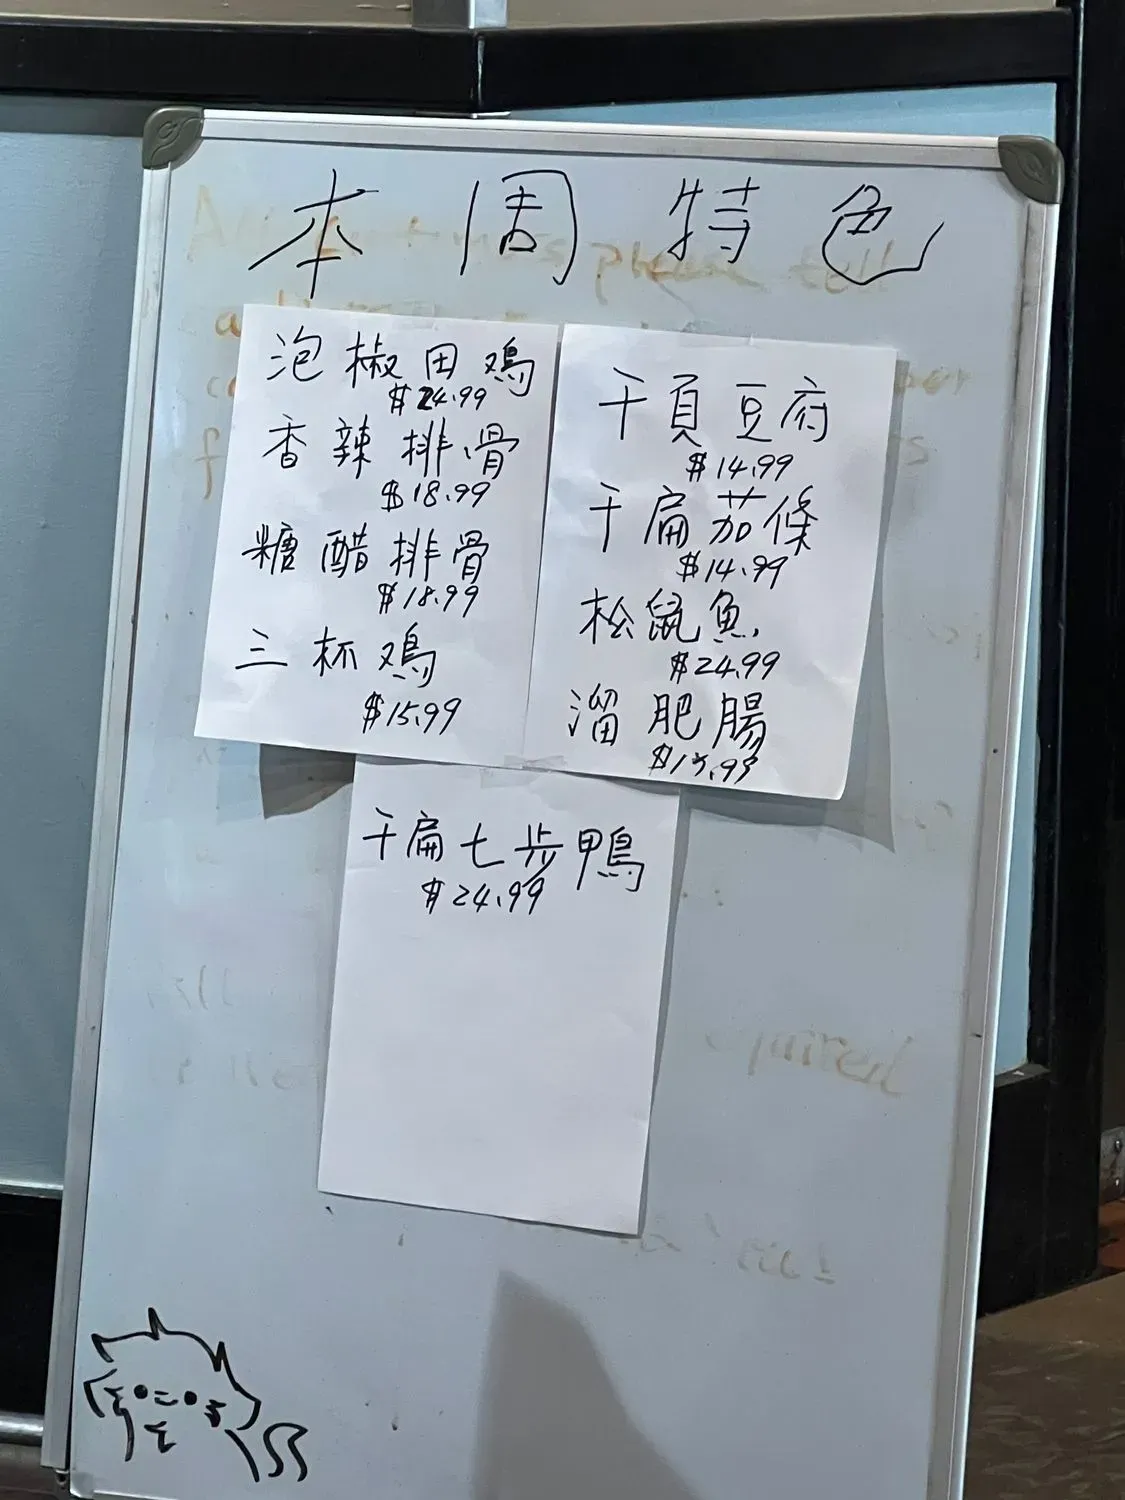 本周特色
泡椒田鸡
$24.99
香辣排骨
$18.99
糖醋排骨
$18.99
三杯鸡
$15.99
干頁豆府
$14.99
干扁茄條
$14.99
松鼠魚
$24.99
溜肥腸
干扁七步鴨
$24.99